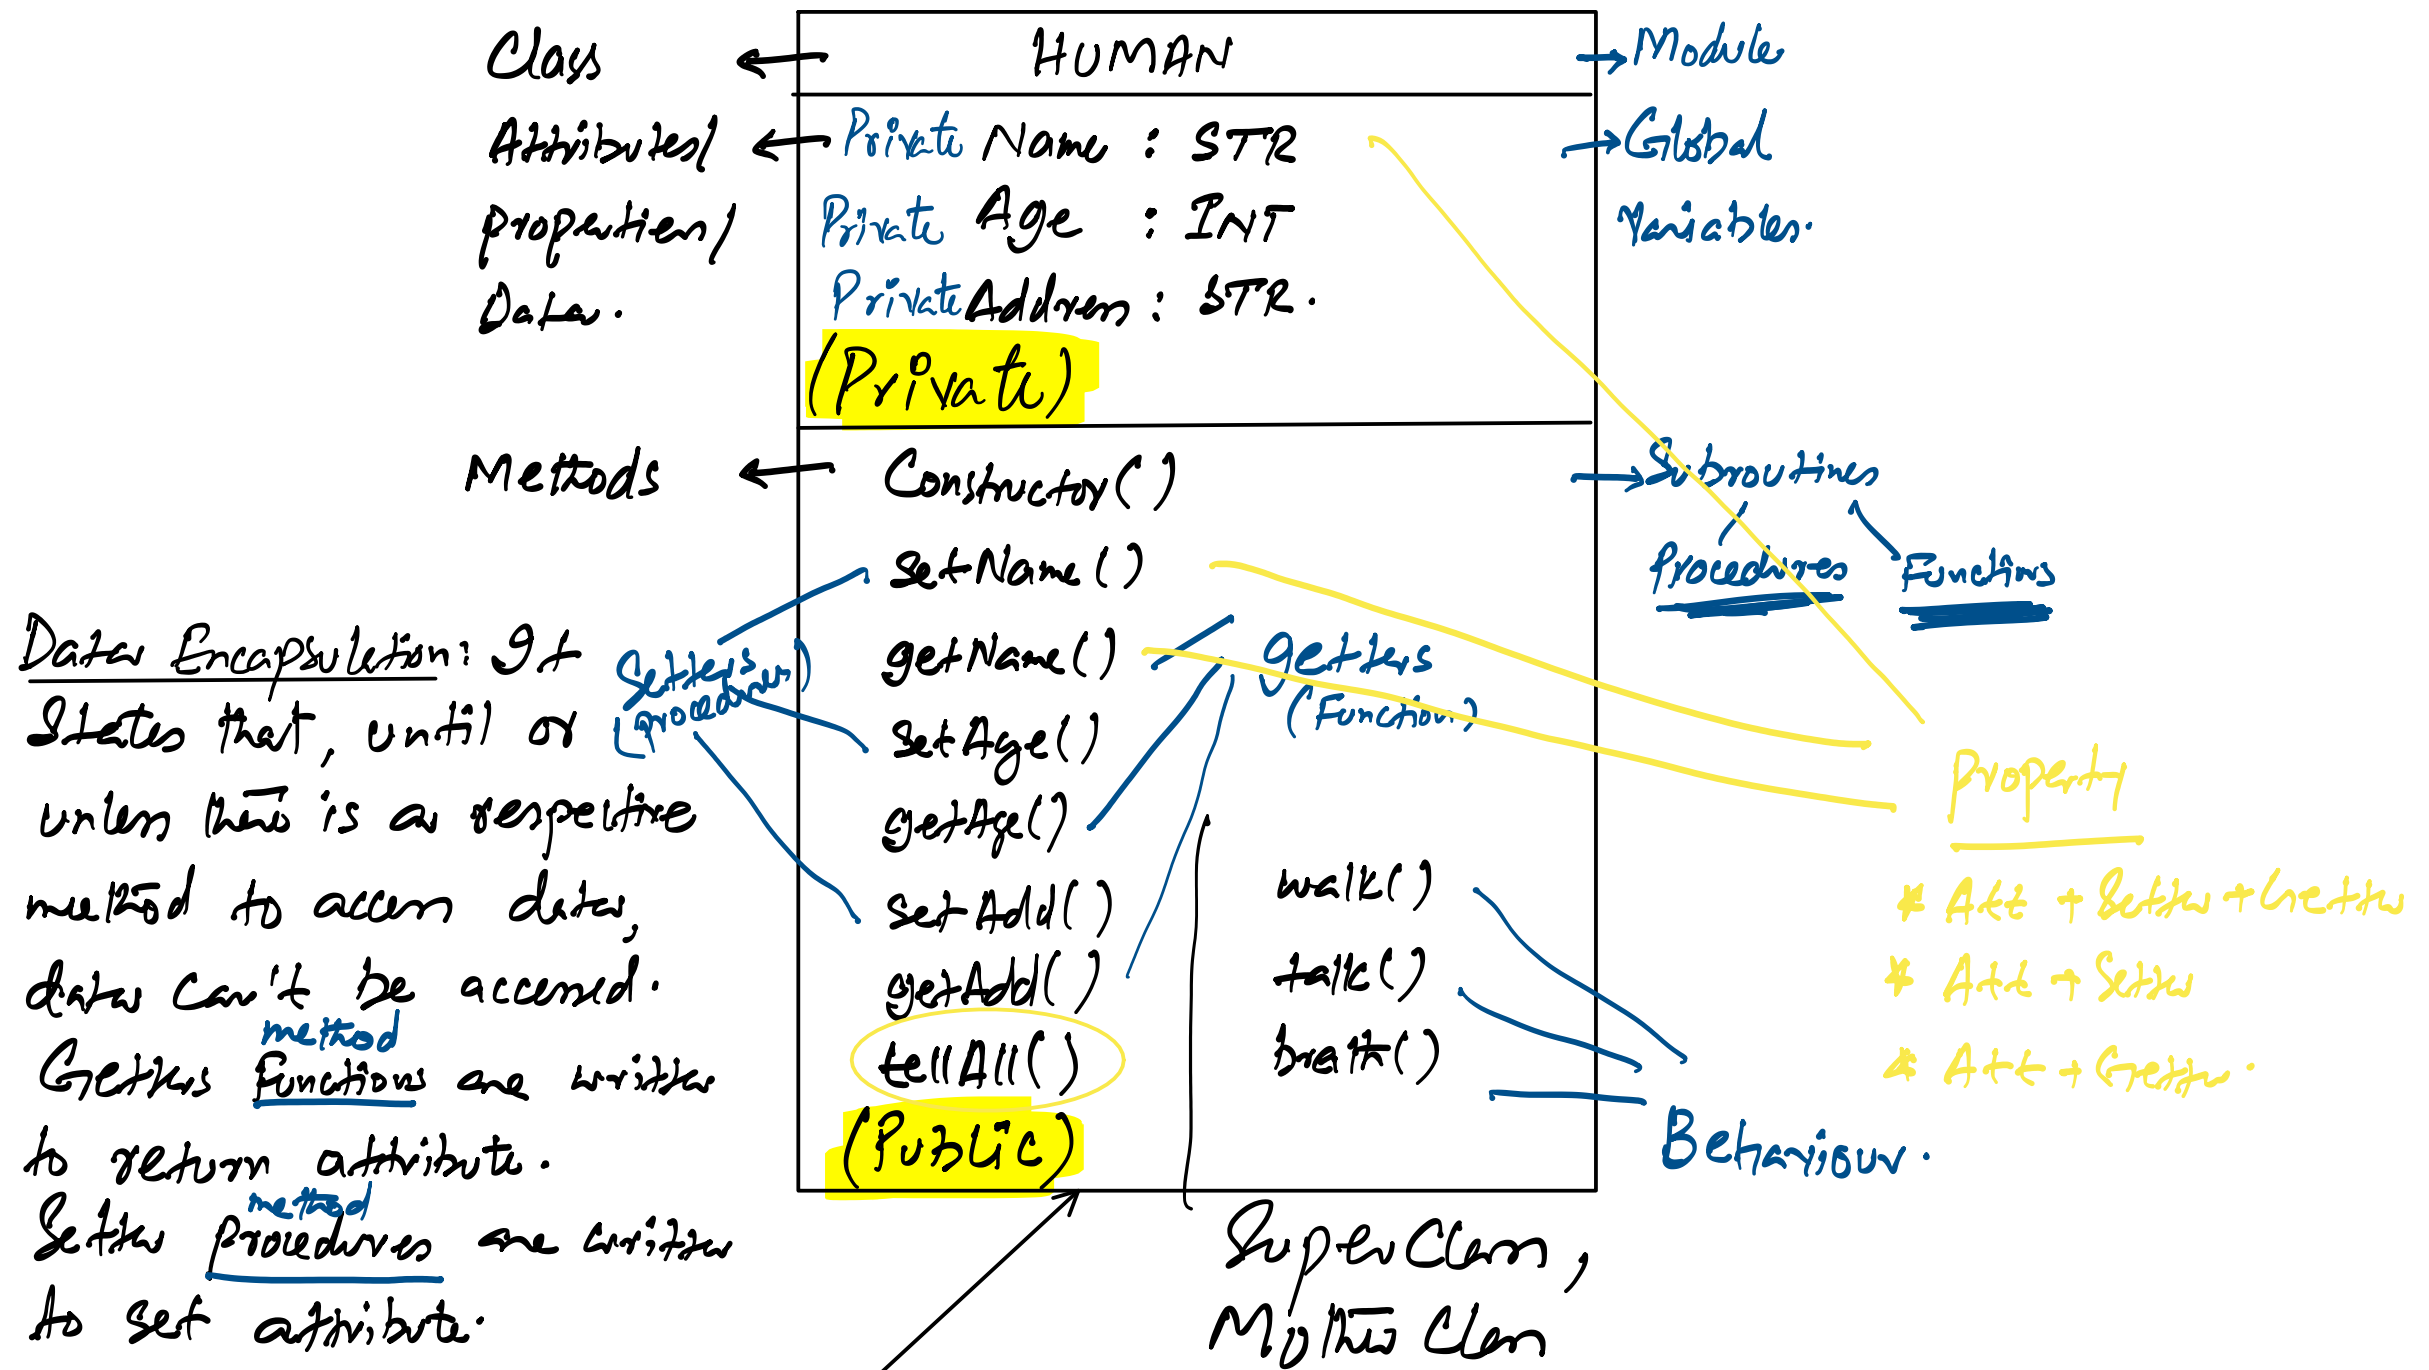 Class
HUMAN
Module
Attributes/
Private Name : STR
Global
Properties/
Private Age : INT
Variables.
Data.
Private Address : STR.
(Private)
Methods
Constructor()
Subroutines
Procedures Functions
setName()
getName()
setAge()
getAge()
setAdd()
getAdd()
tellAll()
(Public)
Setters
(procedures)
getters
(Function)
walk()
talk()
breath()
Behaviour.
Property
* Att + Setter + Getter
* Att + Setter
* Att + Getter.
Data Encapsulation: It
States that, until or
unless there is a respective
method to access data,
data can't be accessed.
method
Getters Functions are written
to return attribute.
method
Setter Procedures are written
to set attribute.
Super Class,
Mother Class